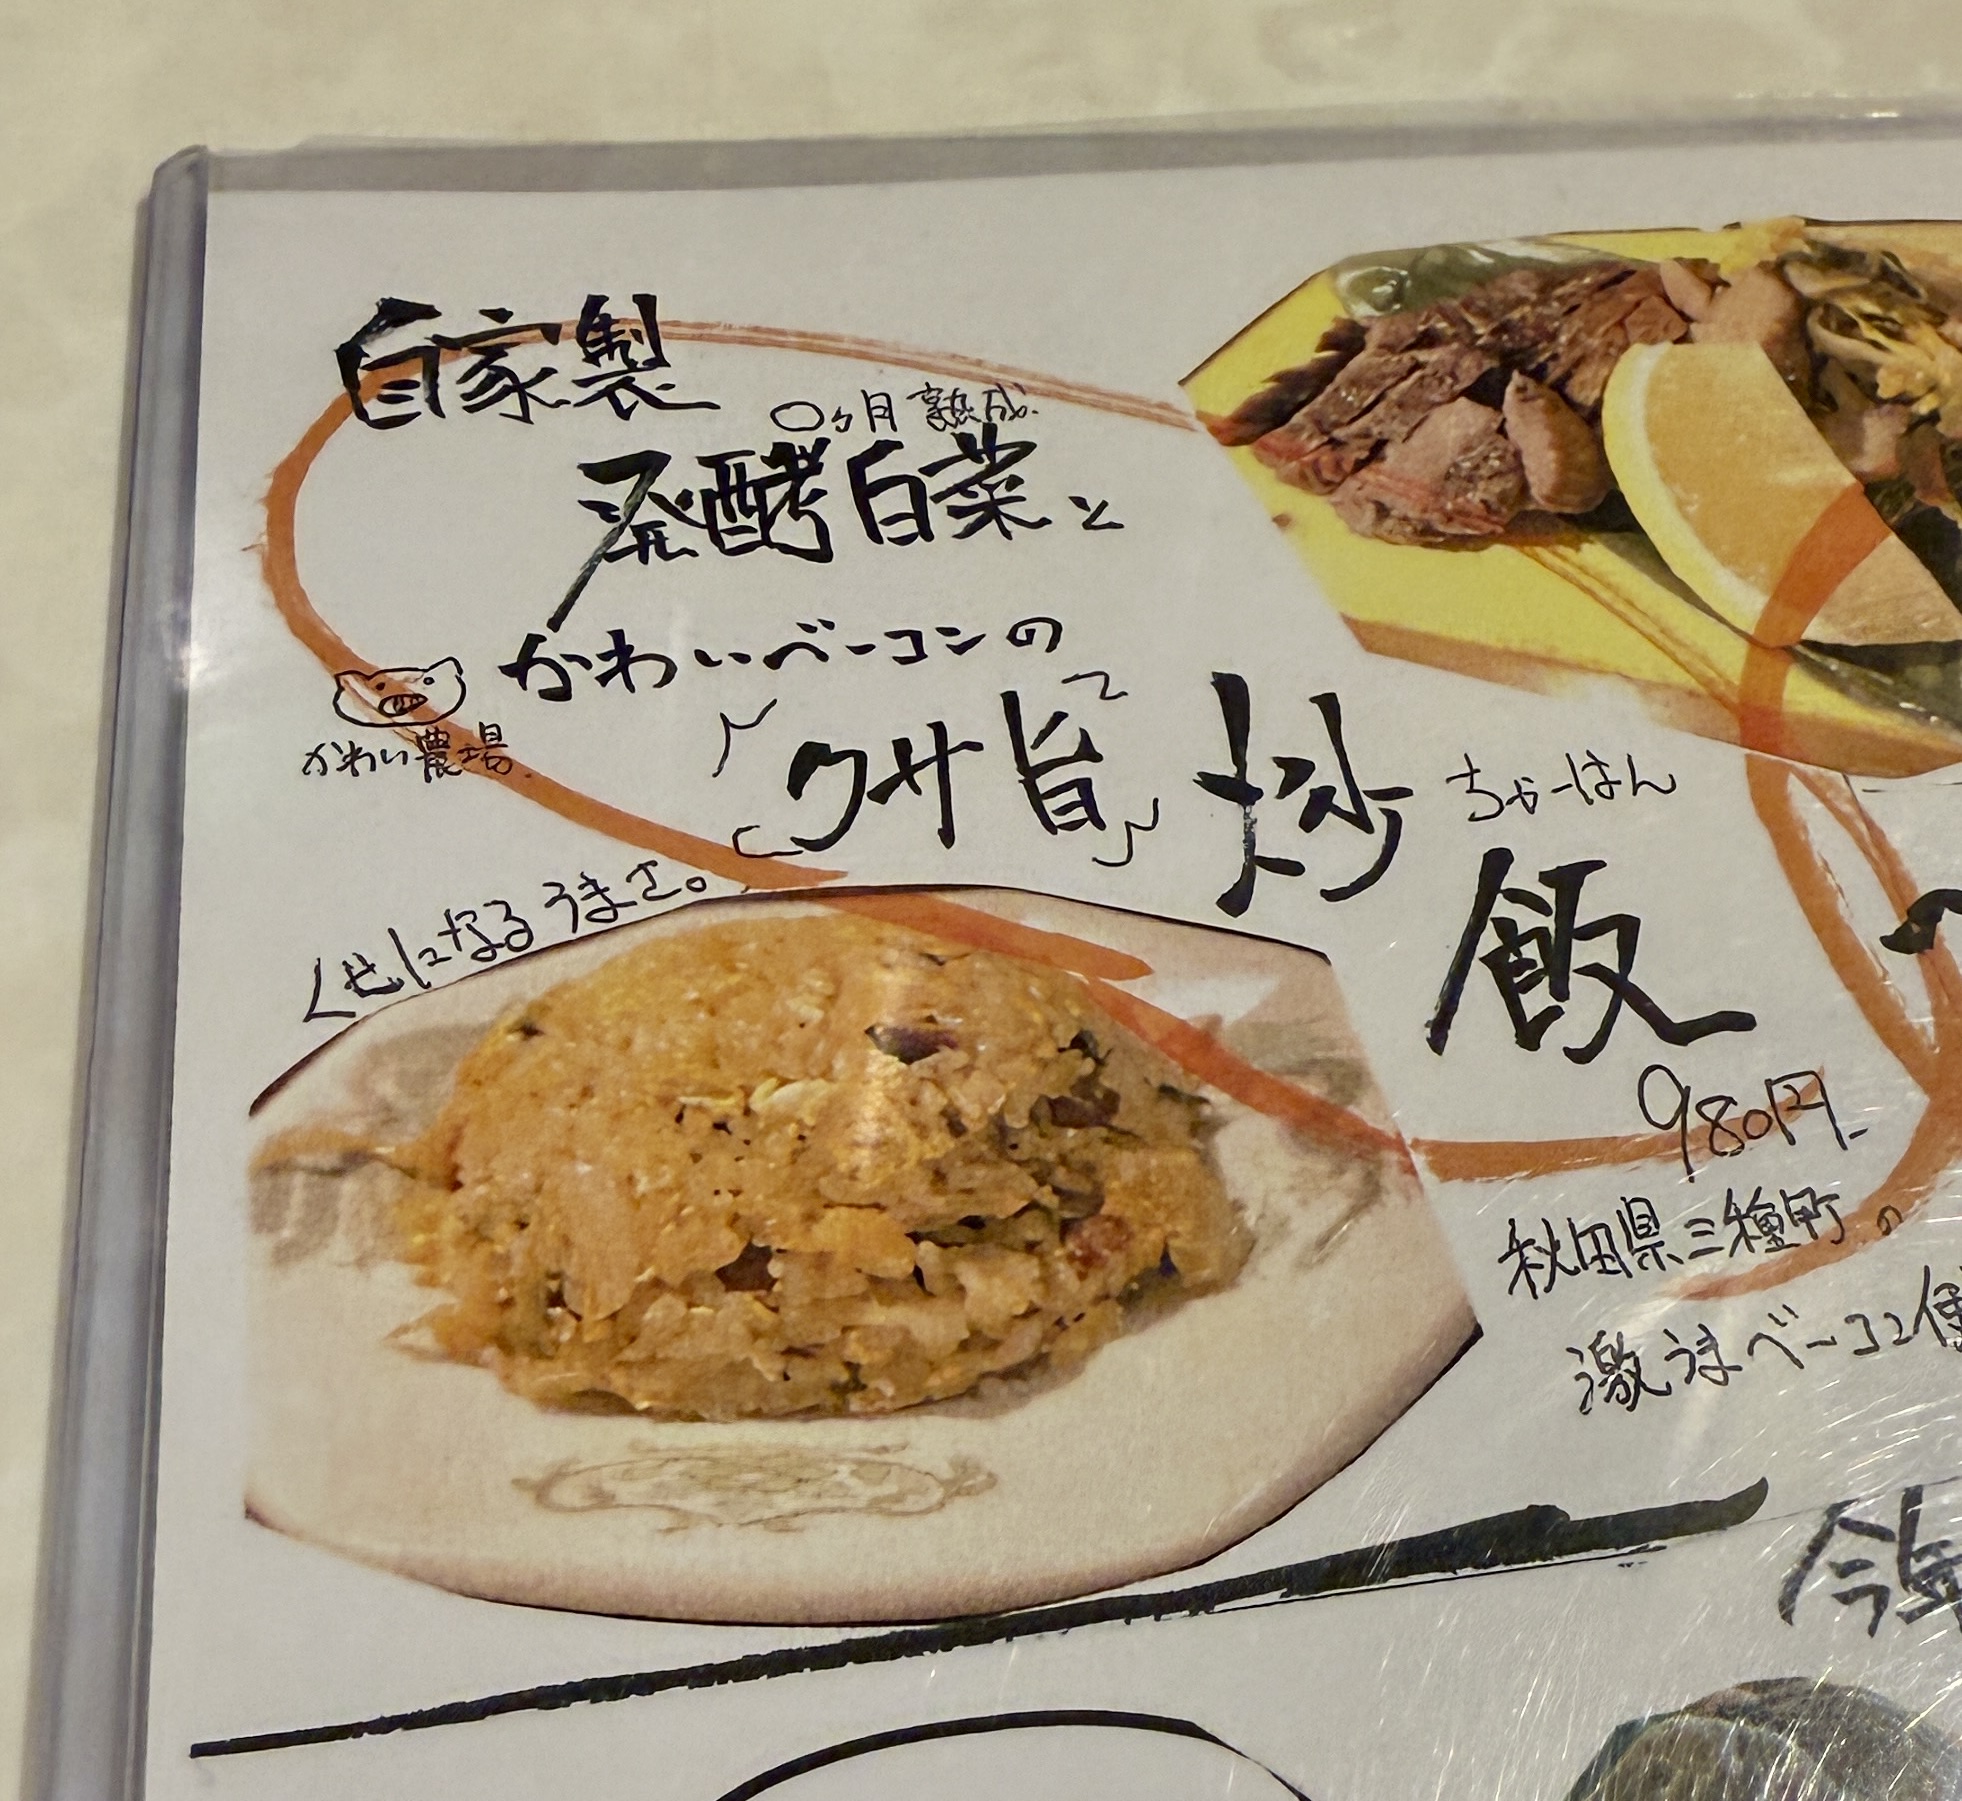 自家製
〇ヶ月熟成
発酵白菜と
かわいベーコンの
かわい農場
「クサ旨」炒飯
ちゃーはん
くせになるうまさ。
980円
秋田県三種町の
激うまベーコン使
今年